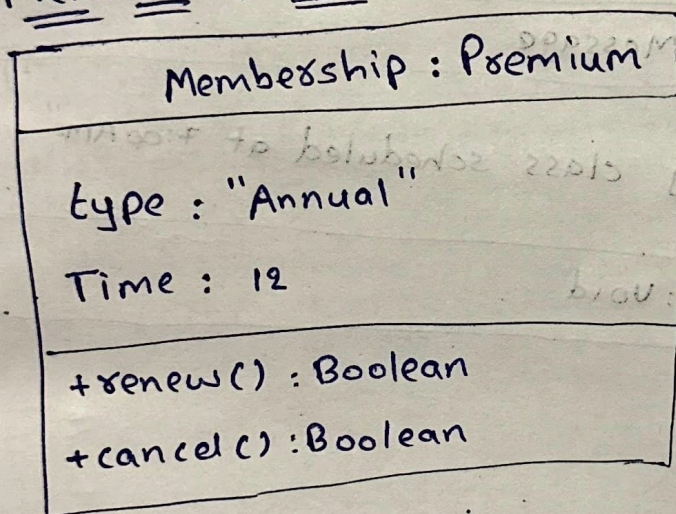 Membership : Premium
type : "Annual"
Time : 12
+renew() : Boolean
+cancel() : Boolean